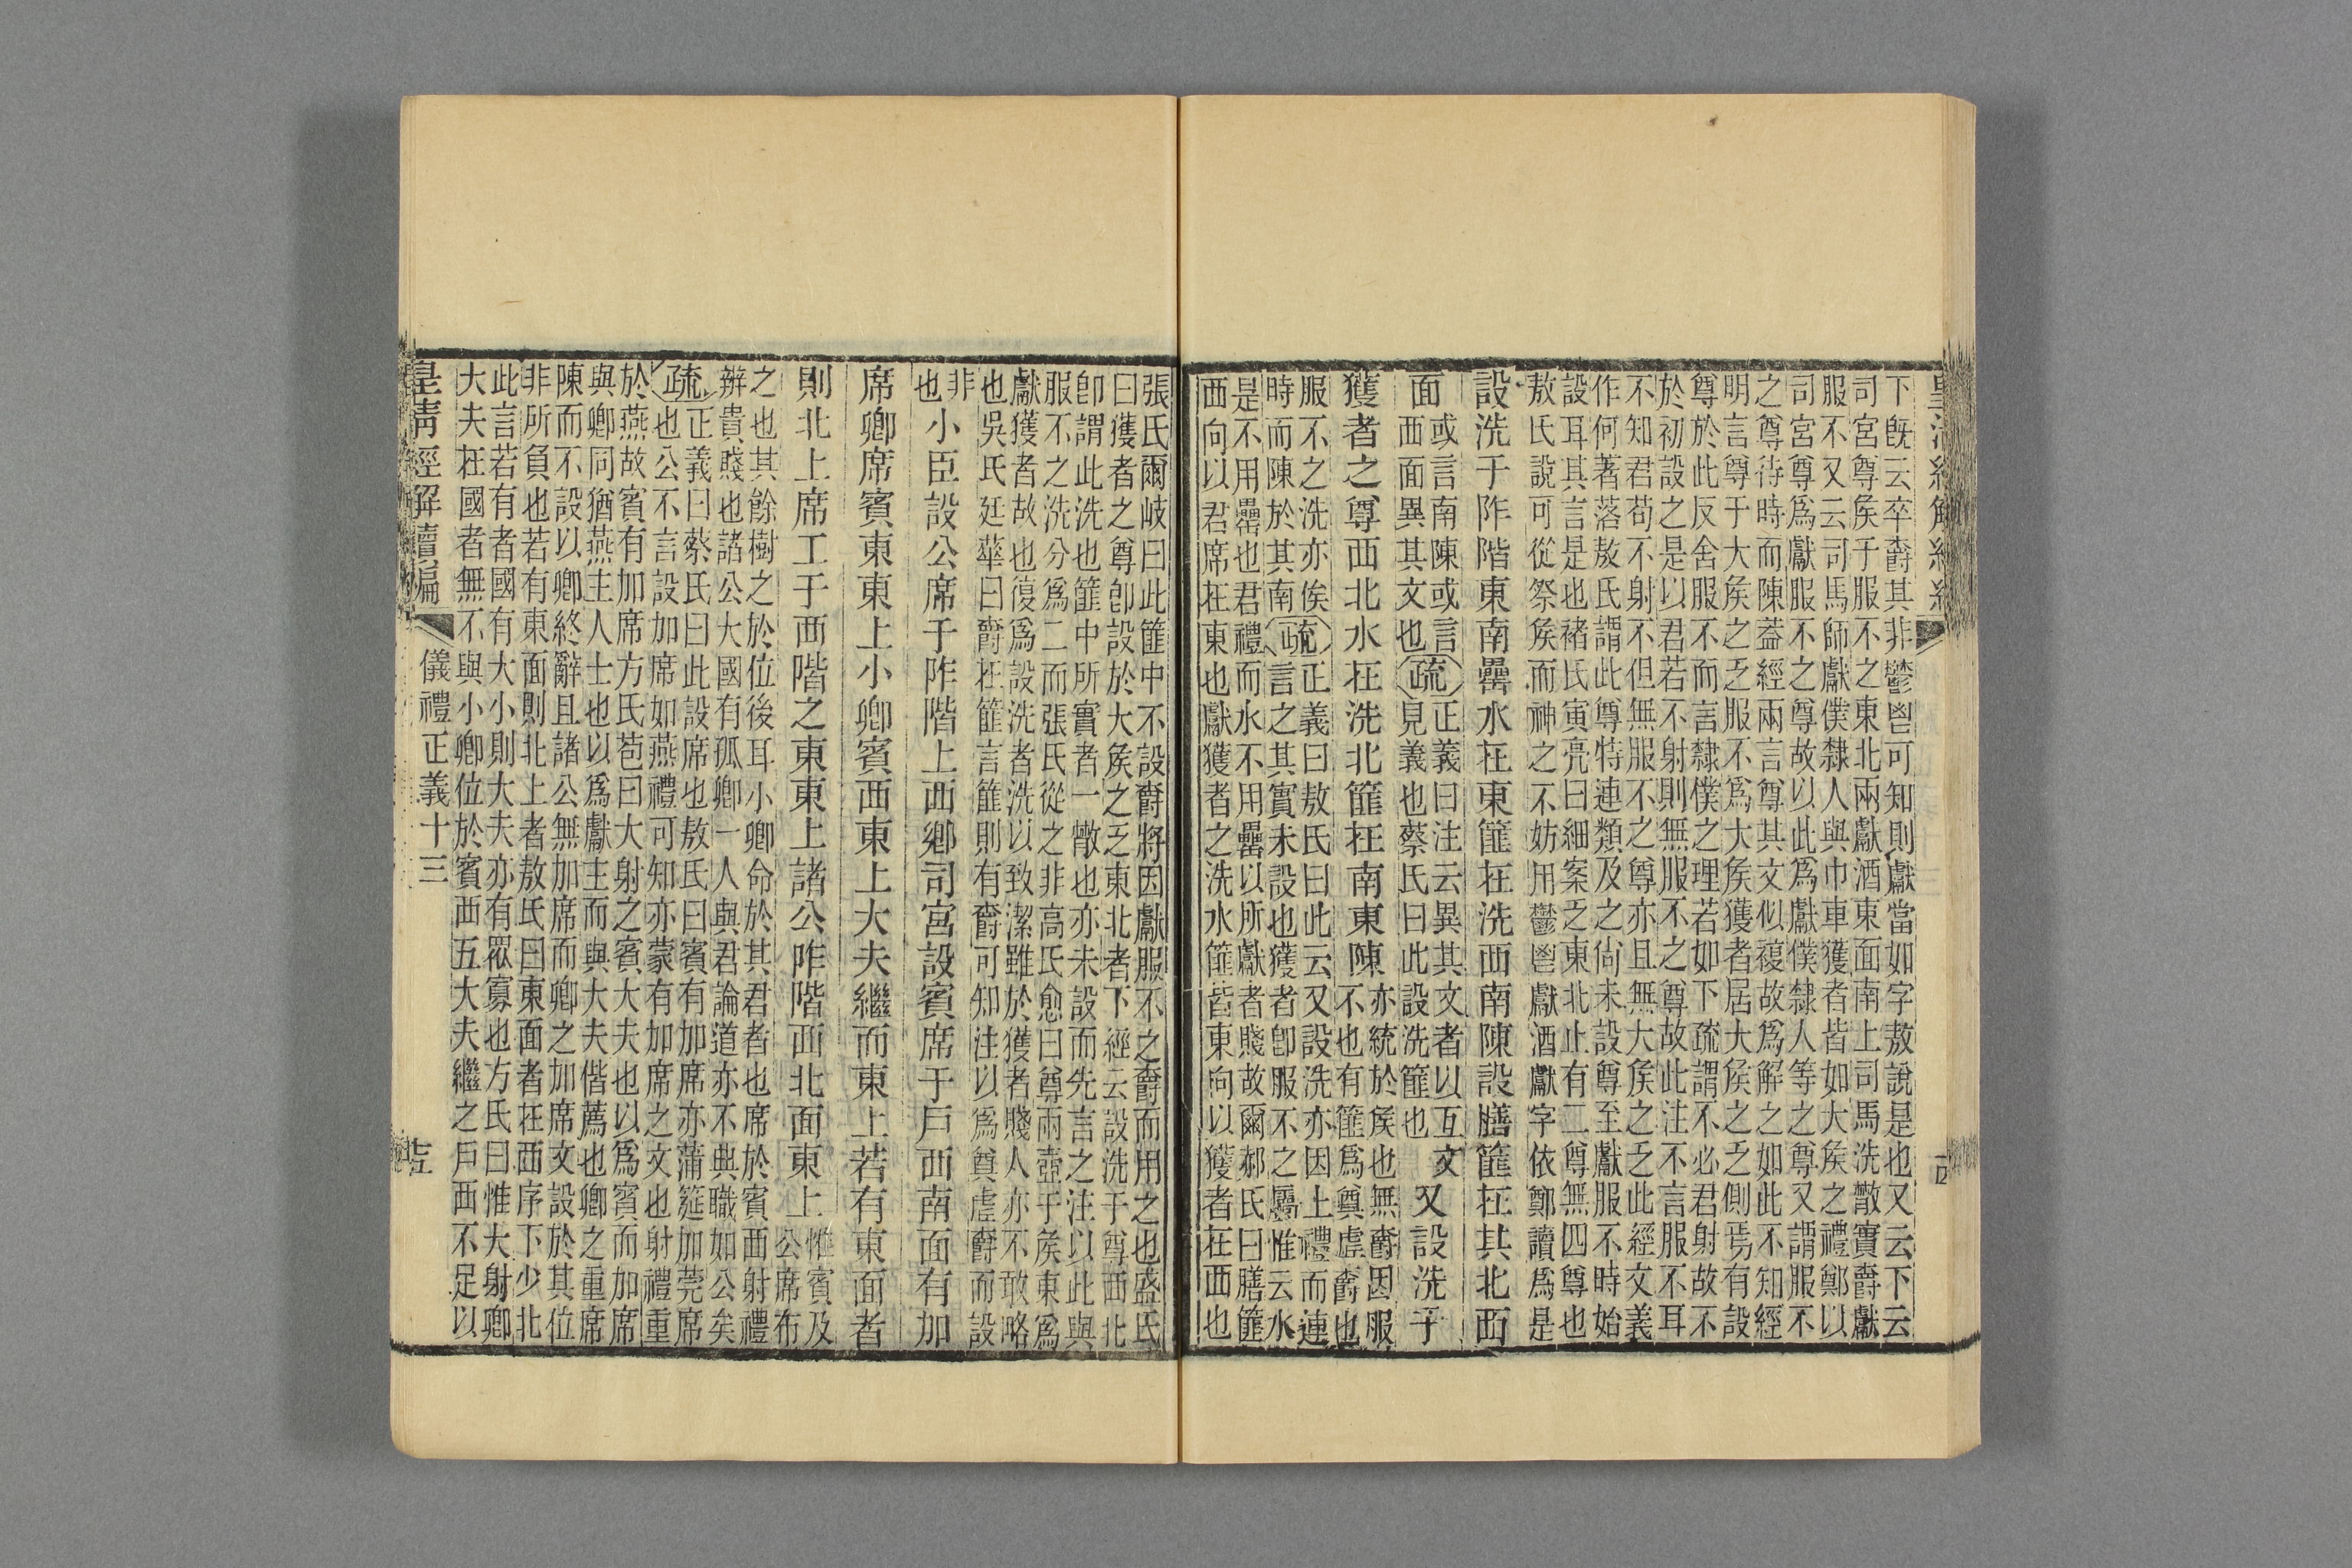 下旣云卒爵其非鬱鬯可知則獻當如字敖說是也又云下云
司宮尊矦于服不之東北兩獻酒東面南上司馬洗散實爵獻
服不又云司馬師獻僕隸人與巾車獲者皆如大矦之禮鄭以
司宮尊爲獻服不之尊故以此爲獻僕隸人等之尊又謂服不
之尊待時而陳葢經兩言尊其文似複故爲解之如此不知經
明言尊于大矦之乏服不爲大矦獲者居大矦之乏側焉有設
尊於此反舍服不而言隸僕之理若如下疏謂不必君射故不
於初設之是以君若不射則無服不之尊故此注不言服不耳
不知君苟不射不但無服不之尊亦且無大矦之乏此經文義
作何著落敖氏謂此尊特連類及之尙未設尊至獻服不時始
設耳其言是也褚氏寅亮曰細案乏東北止有二尊無四尊也
敖氏說可從祭矦而神之不妨用鬱鬯獻酒獻字依鄭讀爲是
設洗于阼階東南罍水在東篚在洗西南陳設膳篚在其北西
面或言南陳或言
西面異其文也疏正義曰注云異其文者以互文
見義也蔡氏曰此設洗篚也又設洗于
獲者之尊西北水在洗北篚在南東陳亦統於矦也無爵因服
不也有篚爲奠虛爵也
服不之洗亦俟
時而陳於其南疏正義曰敖氏曰此云又設洗亦因上禮而連
言之其實未設也獲者卽服不之屬惟云水
是不用罍也君禮而水不用罍以所獻者賤故爾郝氏曰膳篚
西向以君席在東也獻獲者之洗水篚皆東向以獲者在西也
張氏爾岐曰此篚中不設爵將因獻服不之爵而用之也盛氏
曰獲者之尊卽設於大矦之乏東北者下經云設洗于尊西北
卽謂此洗也篚中所實者一散也亦未設而先言之注以此與
服不之洗分爲二而張氏從之非高氏愈曰尊兩壺于矦東爲
獻獲者故也復爲設洗者洗以致潔雖於獲者賤人亦不敢略
也吳氏廷華曰爵在篚言篚則有爵可知注以爲奠虛爵而設
非
也小臣設公席于阼階上西鄉司宮設賓席于戶西南面有加
席卿席賓東東上小卿賓西東上大夫繼而東上若有東面者
則北上席工于西階之東東上諸公阼階西北面東上惟賓及
公席布
之也其餘樹之於位後耳小卿命於其君者也席於賓西射禮
辨貴賤也諸公大國有孤卿一人與君論道亦不典職如公矣
疏正義曰蔡氏曰此設席也敖氏曰賓有加席亦蒲筵加莞席
也公不言設加席如燕禮可知亦蒙有加席之文也射禮重
於燕故賓有加席方氏苞曰大射之賓大夫也以爲賓而加席
與卿同猶燕主人士也以爲獻主而與大夫偕薦也卿之重席
陳而不設以卿終辭且諸公無加席而卿之加席文設於其位
非所負也若有東面則北上者敖氏曰東面者在西序下少北
此言若有者國有大小則大夫亦有眾寡也方氏曰惟大射卿
大夫在國者無不與小卿位於賓西五大夫繼之戶西不足以
皇淸經解續編 儀禮正義十三